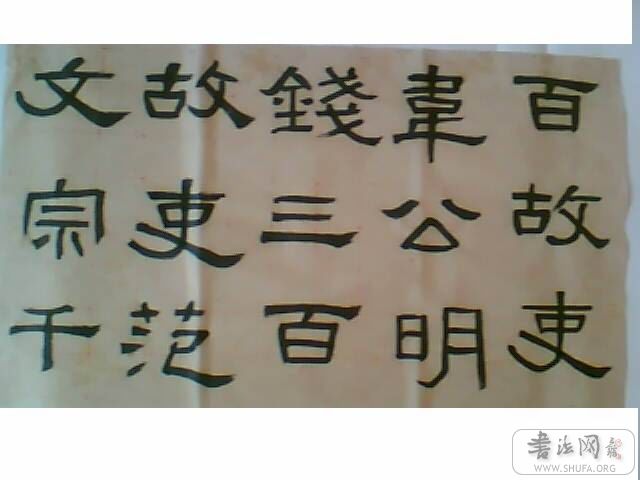 百故吏
韋公明
錢三百
故吏范
文宗千
書法网
WWW.SHUFA.ORG